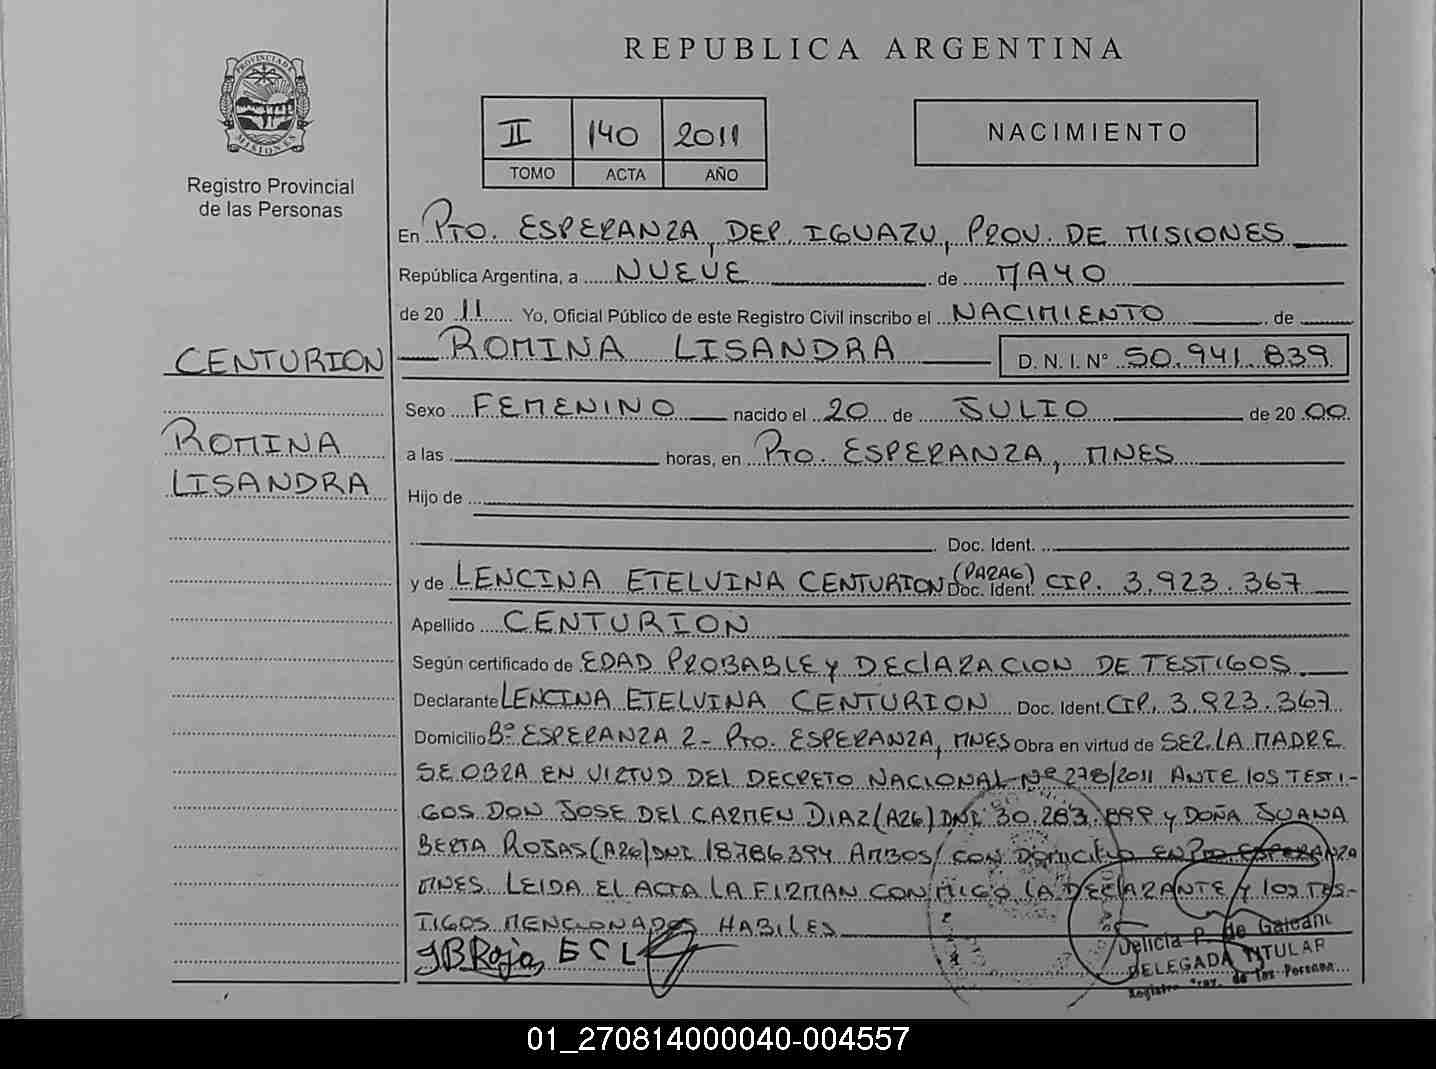 REPUBLICA ARGENTINA
PROVINCIA DE
MISIONES
Registro Provincial
de las Personas
II 140 2011
TOMO ACTA AÑO
NACIMIENTO
En PTO. ESPERANZA, DEP. IGUAZU, PROV. DE MISIONES
República Argentina, a NUEVE de MAYO
de 20 11 Yo, Oficial Público de este Registro Civil inscribo el NACIMIENTO de
ROMINA LISANDRA D. N. I. Nº 50.941.839
CENTURION
ROMINA
LISANDRA
Sexo FEMENINO nacido el 20 de JULIO de 20 00
a las horas, en PTO. ESPERANZA, MNES
Hijo de
Doc. Ident.
y de LENCINA ETELVINA CENTURION (PARAG) Doc. Ident. CIP. 3.923.367
Apellido CENTURION
Según certificado de EDAD PROBABLE y DEClARACION DE TESTIGOS
Declarante LENCINA ETELVINA CENTURION Doc. Ident. CIP. 3.923.367
Domicilio Bº ESPERANZA 2- PTO. ESPERANZA, MNES Obra en virtud de SER LA MADRE
SE OBRA EN VIRTUD DEL DECRETO NACIONAL Nº 278/2011 ANTE lOS TESTI-
GOS DON JOSE DEL CARMEN DIAZ (ARG) DNI 30.283.899 y DOÑA JUANA
BERTA ROJAS (ARG) DNI 18786394 AMBOS CON DOMICILIO EN PTO ESPERANZA
MNES. LEIDA El ACTA LA FIRMAN CONMIGO lA DEClARANTE y lOS TES-
TIGOS MENCIONADOS HABILES
JB Rojas E C L
Delicia P. de Galeano
DELEGADA TITULAR
Registro Prov. de las Personas
01_270814000040-004557